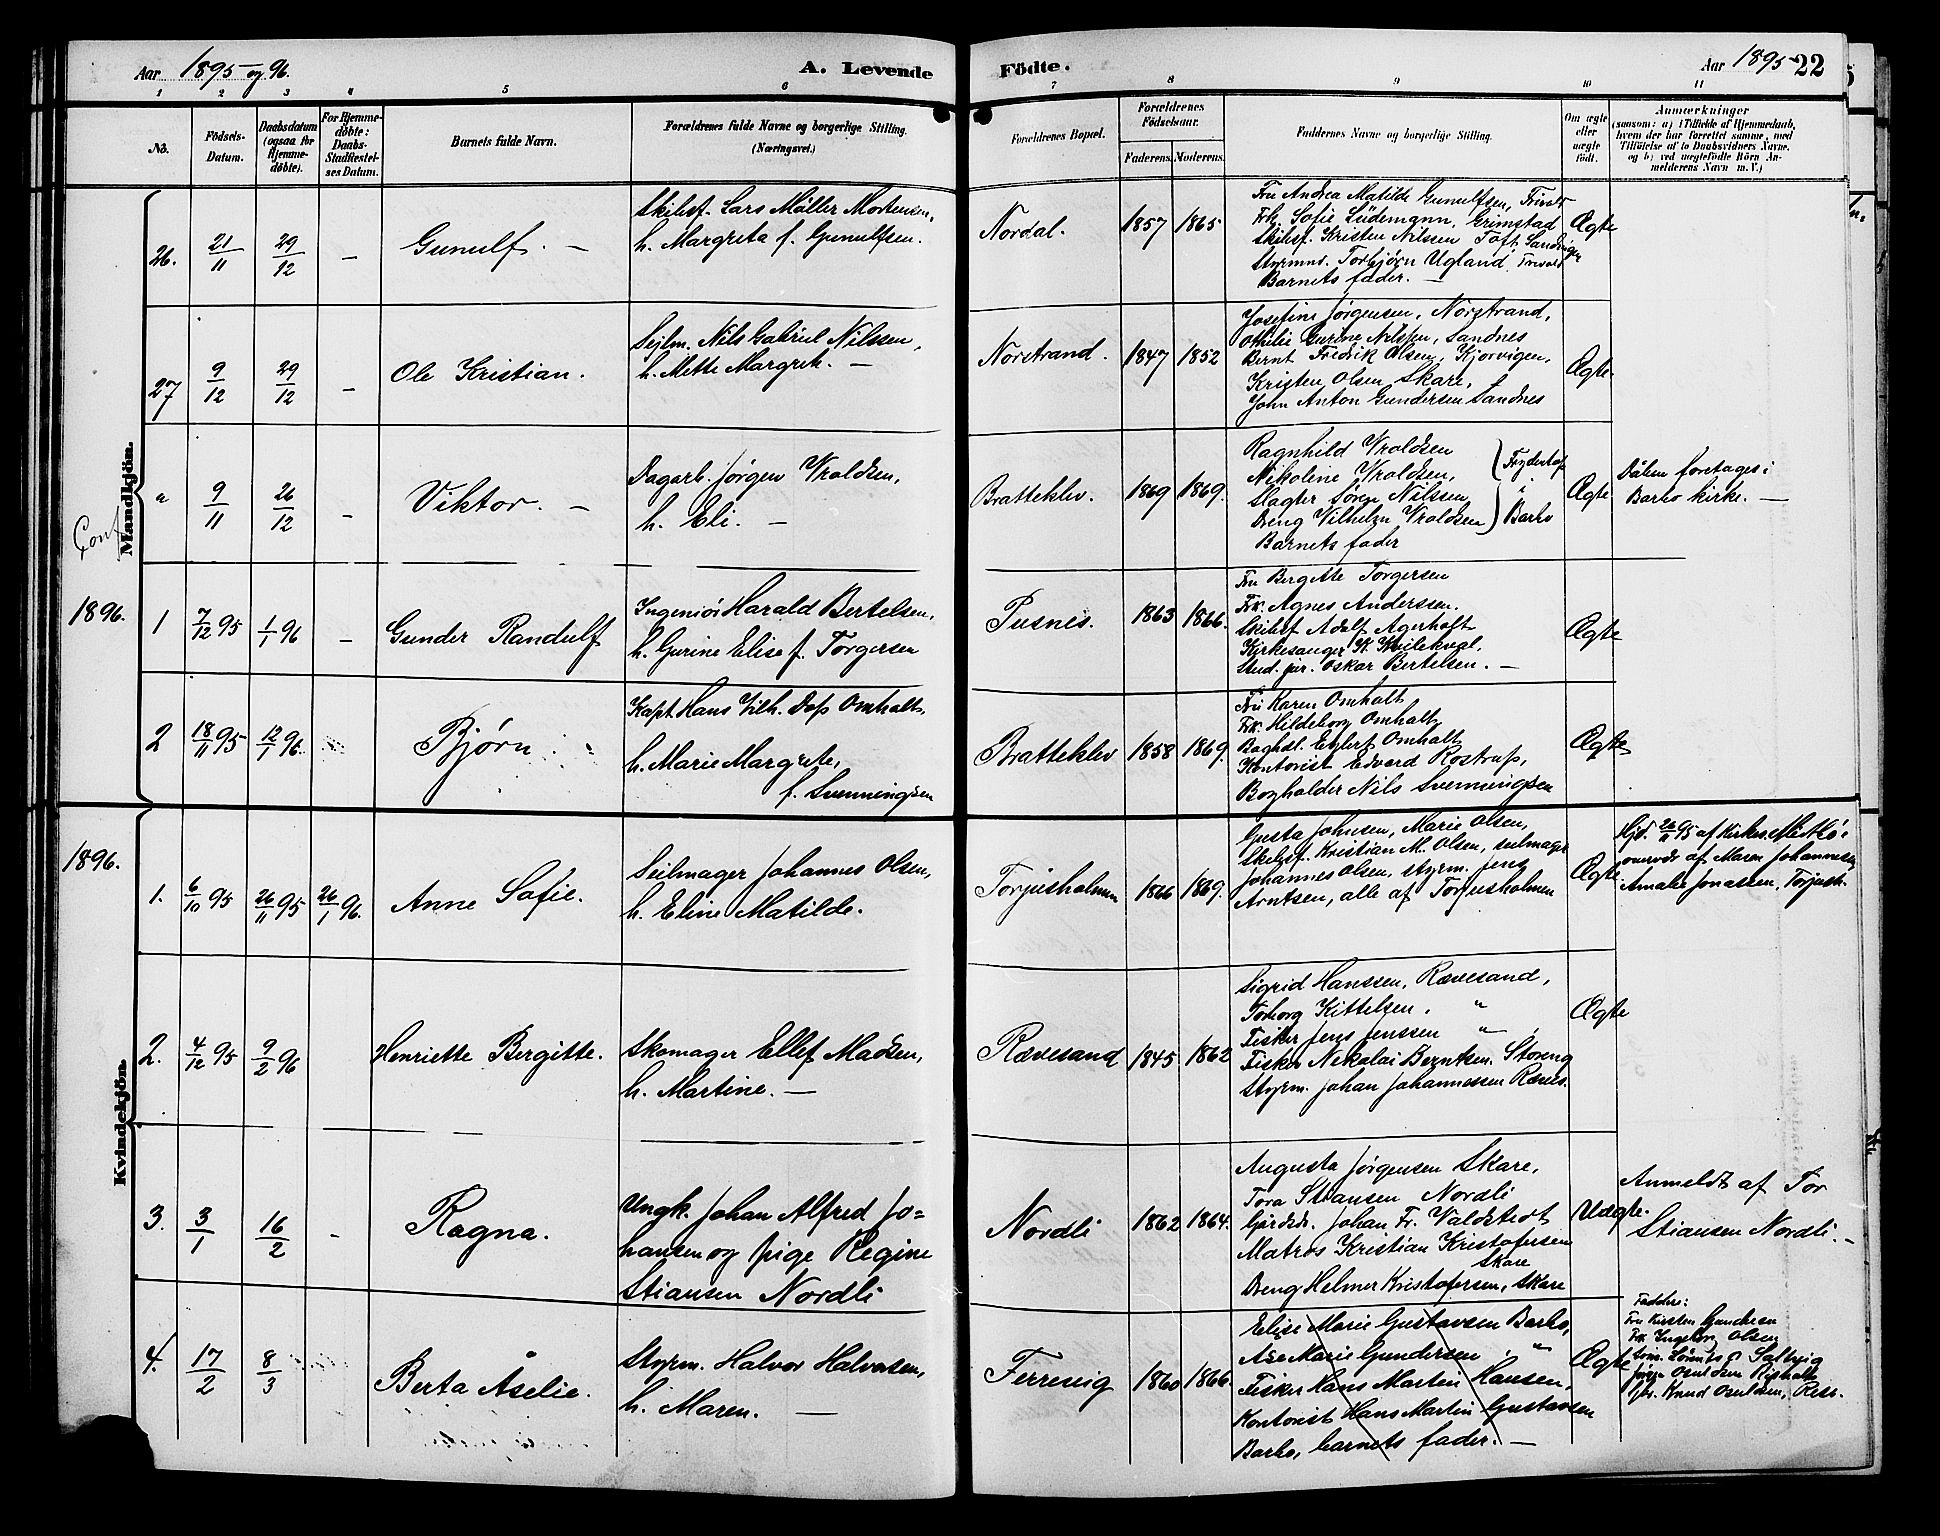 Aar 1895 og 96.
A. Levende
Födte.
Aar 1895
22
1 2 3 4 5 6 7 8 9 10 11
No.
Födsels-
Datum.
Daabsdatum
(ogsaa for
Hjemme-
døbte).
For Hjemme-
døbte:
Daabs-
Stadfæstel-
ses Datum.
Barnets fulde Navn.
Forældrenes fulde Navne og borgerlige Stilling.
(Næringsvei.)
Forældrenes Bopæl.
Forældrenes
Födselsaar.
Faderens.
Moderens.
Faddernes Navne og borgerlige Stilling.
Om ægte
eller
uægte
födt.
Anmærkninger
(saasom: a) i Tilfælde af Hjemmedaab,
hvem der har forrettet samme, med
Tilföielse af to Daabsvidners Navne,
og b) ved uægtefödte Börn An-
melderens Navn m. V.)
Mandkjön.
26. 21/11 29/12 – Gunulf. –
Skibsf. Lars Möller Mortensen,
h. Margreta f. Gunulfsen.
Nordal. 1857 1865
Fru Andrea Matilde Gunulfsen,
Frk. Sofie Lüdemann, Grimstad
Skibsf. Kristen Nilsen Toft,
Styrmns. Torbjørn Ugland,
Barnets fader. –
Ægte
27 9/12 29/12 – Ole Kristian.
Sejlm. Nils Gabriel Nilssen,
h. Mette Margreth. –
Norstrand. 1847 1852
Josefine Jörgensen, Norstrand,
Othilie Gurine Nilssen, Sandnes
Bernt Fredrik Olsen, Kjorvigen,
Kristen Olsen Skare,
John Anton Gundersen Sandnes
Ægte
a 9/11 26/12 – Viktor. –
Dagarb. Jörgen Vroldsen,
h. Eli. –
Bratteklev. 1869 1869.
Ragnhild Vroldsen
Nikoline Vroldsen,
Slagter Sören Nilssen
Dreng Vilhelm Vroldsen
Barnets fader
Barbo
Ægte
Dåben foretages i
Barbo kirke. –
1896.
1 7/12 95 1/1 96 – Gunder Randulf
Ingeniör Harald Bertelsen,
h. Gurine Elise f. Torgersen
Pusnes. 1863 1866.
Fru Bergitte Torgersen
Frk. Agnes Anderssen.
Skibsf. Adolf Agerholt
Kirkesanger K.
Stud. jur. Oskar Bertelsen. –
Ægte
2 18/11 95 12/1 96. Bjørn
Kapt. Hans Vilh. Omholt,
h. Marie Margrete,
f. Svenningsen
Bratteklev 1858 1869.
Fru Karen Omholt
Frk. Hildeborg Omholt
Boghdl. Eylert Omholt
Kontorist Edvard Rostrup,
Bogholder Nils Svenningsen
Ægte
1896.
Kvindekjön.
1. 6/10 95 26/11 95 26/1 96. Anne Sofie.
Seilmager Johannes Olsen,
h. Eline Matilde.
Torjusholmen 1866 1869.
Gusta Johnsen, Marie Olsen,
Skibsf. Kristian M. Olsen, seilmager
Johannes Olsen, styrm. Jens
Arntsen, alle af Torjusholmen
Ægte.
Hjd. 26/11 95 af Kirkes.
overvær af Maren Johannesen,
Amalie Jonassen, Torjush.
2. 4/12 95 9/2 96 Henriette Bergitte.
Skomager Ellef Madsen,
h. Martine. –
Rævesand 1845 1862
Sigrid Hanssen, Rævesand,
Torborg Kittelsen, "
Fisker Jens Jenssen "
Fisker Nekolai Berntsen, Storeng
Styrm. Johan Johannessen Ræves.
Ægte
3. 3/1 16/2 – Ragna.
Ungk. Johan Alfred Jo=
hansen og pige Regine
Stiansen Nordli
Nordli 1862 1864.
Augusta Jörgensen Skare,
Tora Stiansen Nordli
Gårdbr. Johan Fr. Valdstedt
Matros Kristian Kristofersen
Skare
Dreng Helmer Kristofersen, Skare
Uægte.
Anmeldt af Tor
Stiansen Nordli. –
4. 17/2 8/3 Berta Åselie.
Styrm. Halvor Halvorsen,
h. Maren. –
Ferrevig 1860 1866.
Elise Marie Gustavsen Barbo,
Ase Marie Gundersen, "
Fisker Hans Martin Hansen,
Kontorist Hans Martin Gustavsen
Barbo, barnets fader. –
Ægte
Faddere:
Fru Kirsten Gundersen
Frk. Ingeborg Olsen